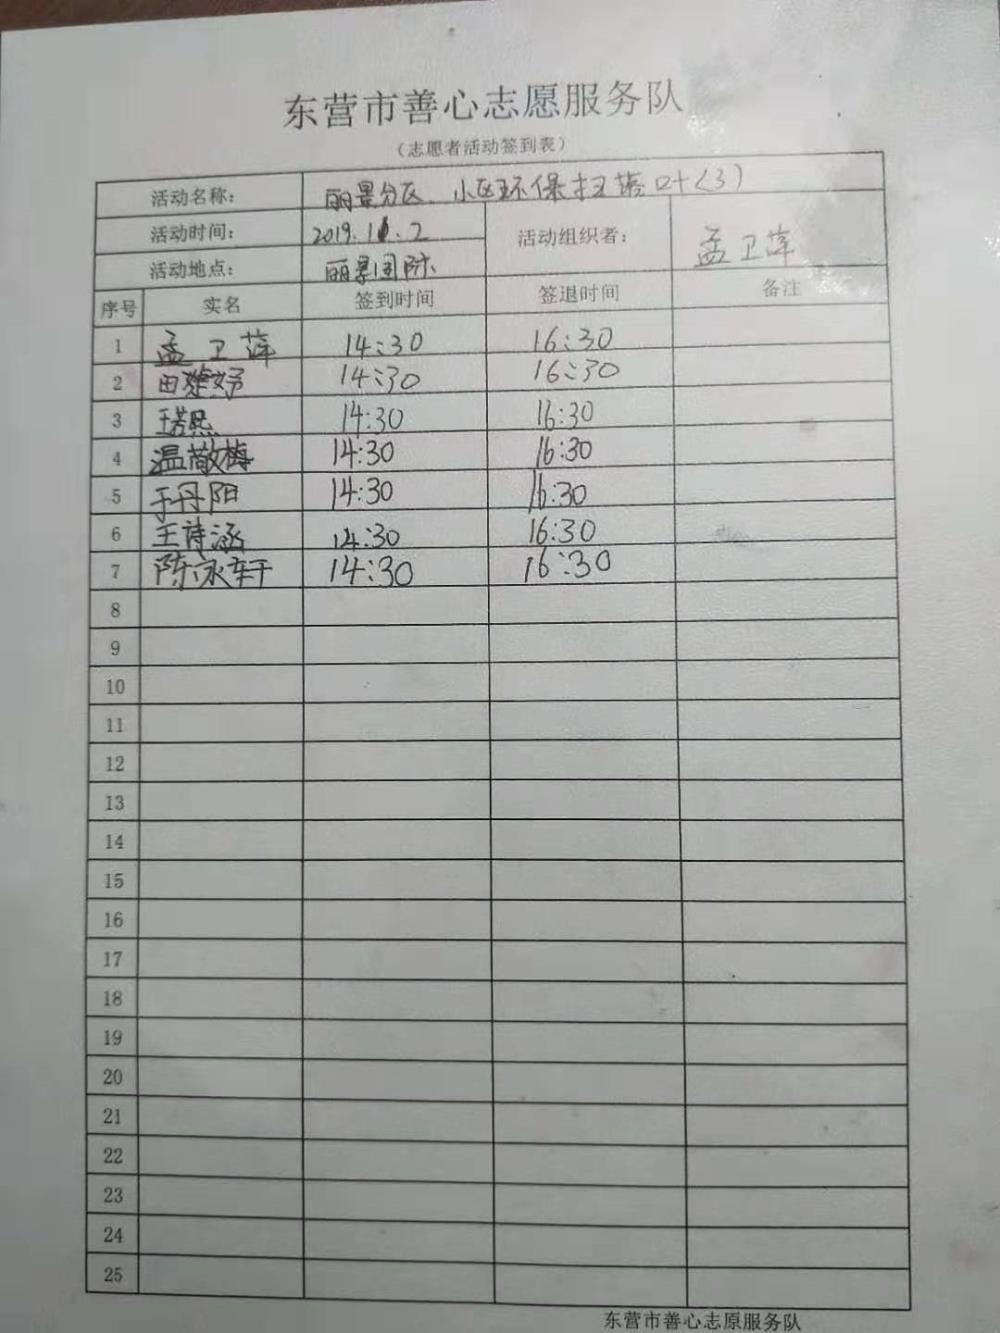 东营市善心志愿服务队
（志愿者活动签到表）
活动名称： 丽景分区、小区环保扫落叶（3）
活动时间： 2019.11.2 活动组织者： 孟卫萍
活动地点： 丽景国际
序号 实名 签到时间 签退时间 备注
1 孟卫萍 14:30 16:30
2 田 14:30 16:30
3 14:30 16:30
4 温敬梅 14:30 16:30
5 于丹阳 14:30 16:30
6 王诗涵 14:30 16:30
7 陈永轩 14:30 16:30
8
9
10
11
12
13
14
15
16
17
18
19
20
21
22
23
24
25
东营市善心志原服务队